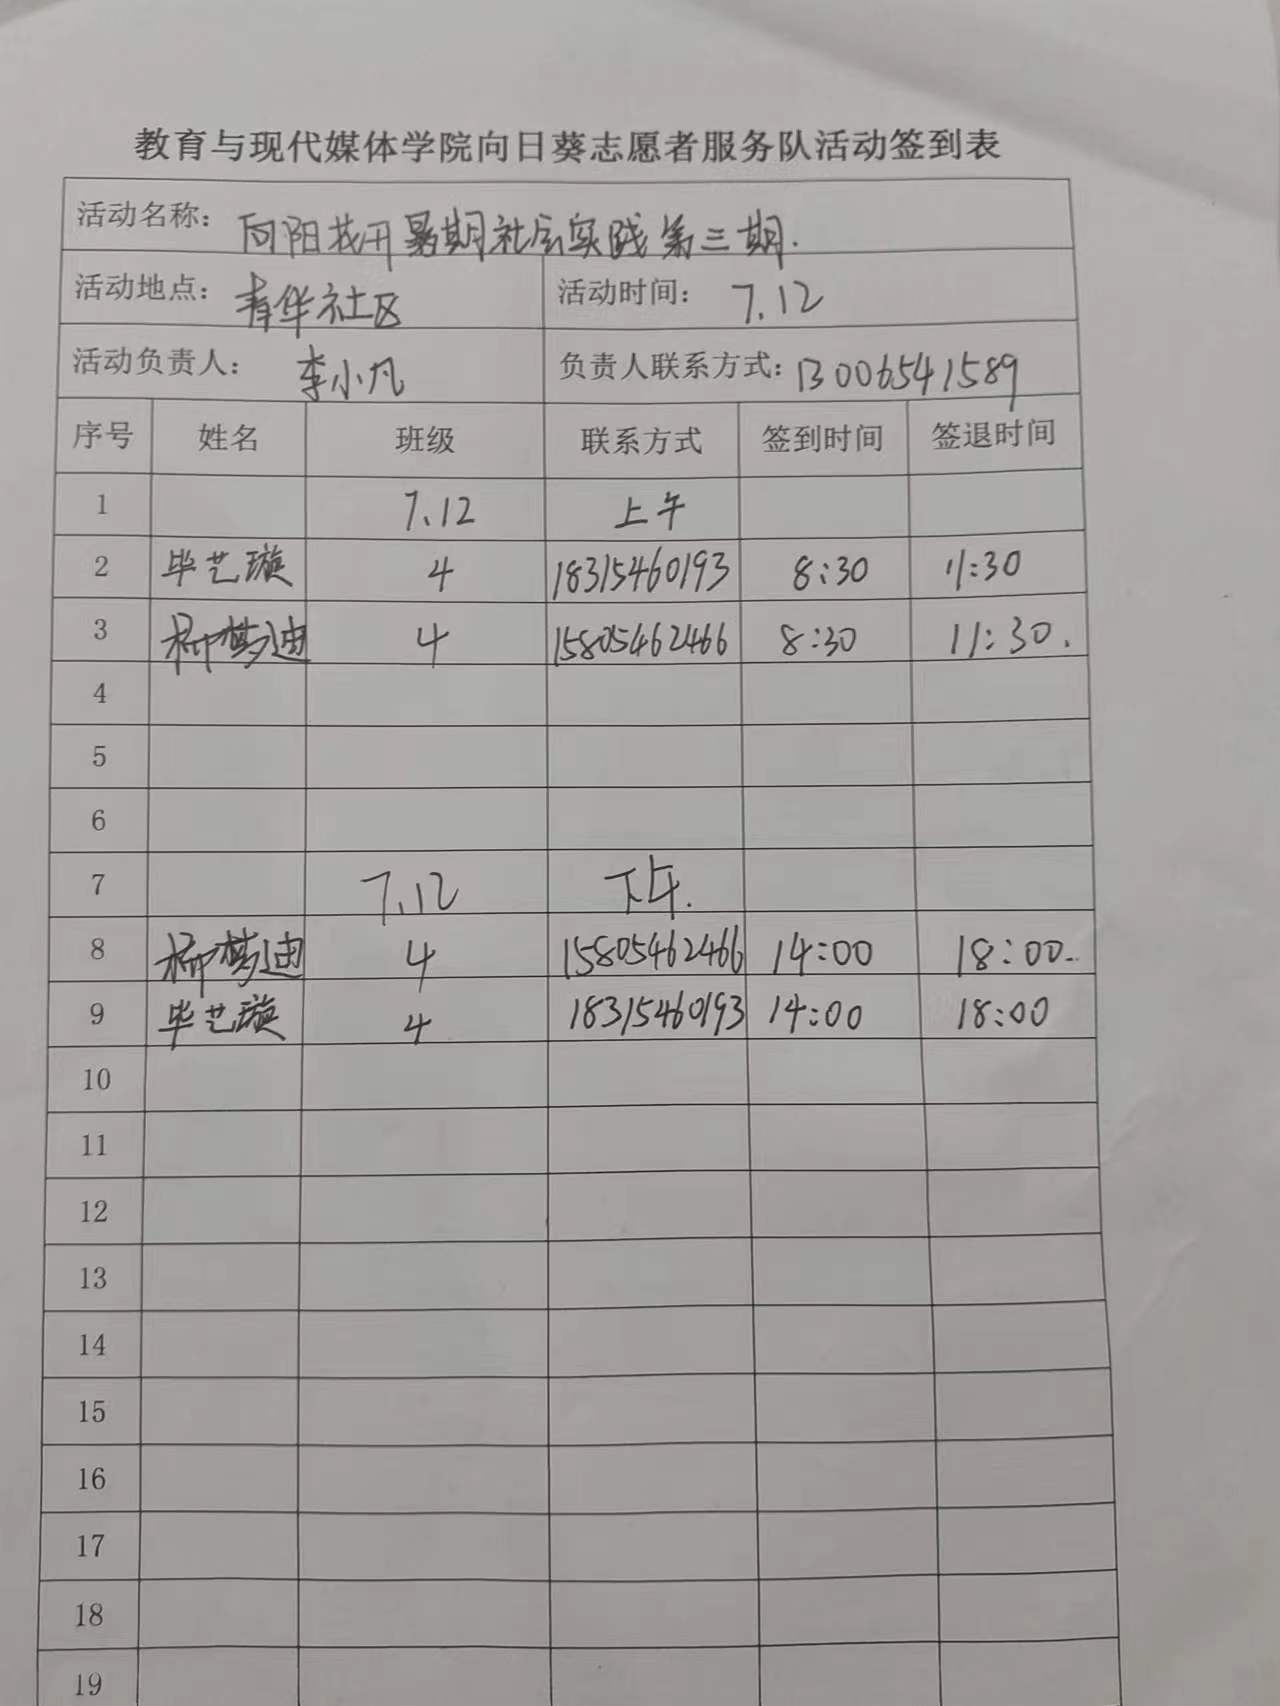 教育与现代媒体学院向日葵志愿者服务队活动签到表
活动名称： 向阳花开暑期社会实践第三期.
活动地点： 青华社区 活动时间： 7.12
活动负责人： 李小凡 负责人联系方式：13006541589
序号 姓名 班级 联系方式 签到时间 签退时间
1 7.12 上午
2 毕艺璇 4 18315460193 8:30 11:30
3 柳梦迪 4 15805462466 8:30 11:30.
4
5
6
7 7.12 下午.
8 柳梦迪 4 15805462466 14:00 18:00.
9 毕艺璇 4 18315460193 14:00 18:00
10
11
12
13
14
15
16
17
18
19